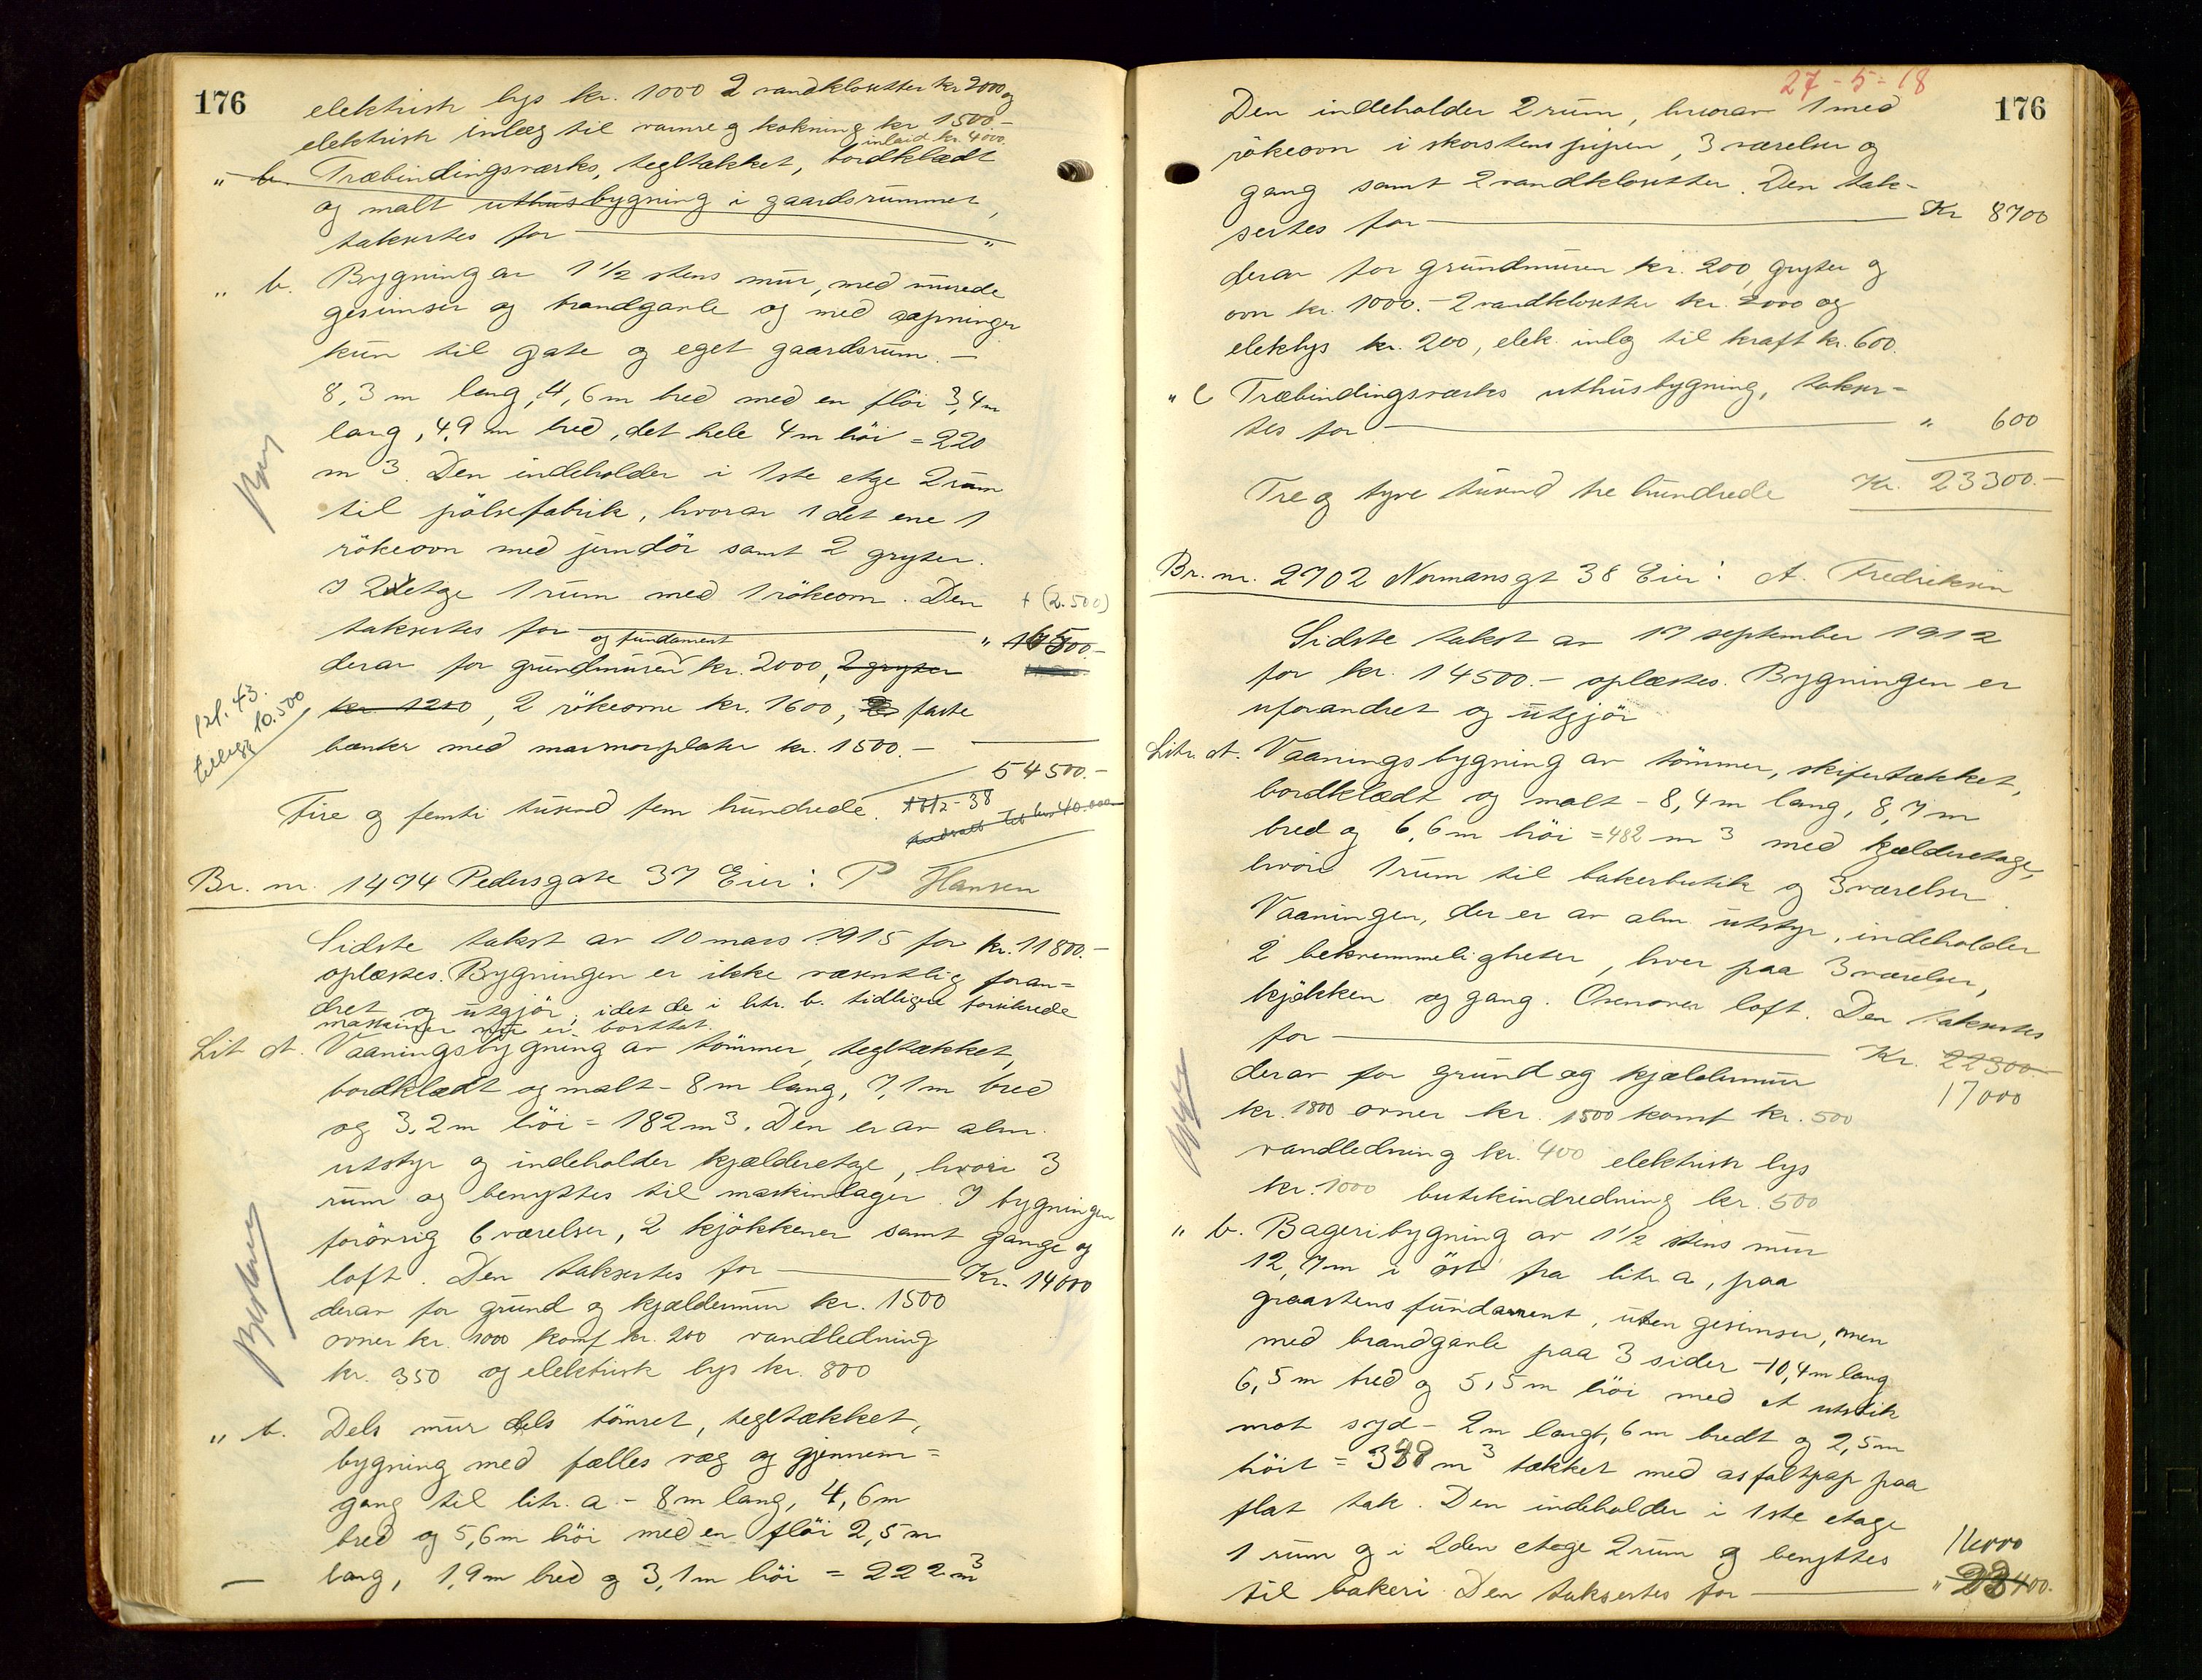 176
elektrisk lys kr. 1000 2 vandklosetter kr 2000 og
elektrisk inlæg til varme og kokning kr 1500-
inlaid kr 4000.
" b. Træbindingsværks, tegltækket, bordklædt
og malt uthusbygning i gaardsrummet,
taksertes for "
" b. Bygning av 1 1/2 stens mur, med murede
gesimser og brandgavle og med aapninger
kun til gate og eget gaardsrum. -
8,3 m lang, 4,6 m bred med en flöi 3,4 m
lang, 4,9 m bred, det hele 4 m höi = 220
m 3. Den indeholder i 1ste etge 2 rum
til pölsefabrik, hvorav i det ene 1
rökeovn med jerndör samt 2 gryter.
I 2 etge 1 rum med 1 rökeovn. Den
+ (2.500)
taksertes for " 16500.-
og fundament
derav for grundmuren kr. 2000, 2 gryter
kr. 1200, 2 rökeovne kr. 1600, faste
bænker med marmorplater kr. 1500.-
pol. 43.
tillegg 10.500
54500.-
Fire og femti tusend fem hundrede. 17/2-38
40.000
Br. nr. 1474 Pedersgate 37 Eier: P Hansen
Sidste takst av 10 mars 1915 for kr. 11800.-
oplæstes. Bygningen er ikke væsentlig foran=
dret og utgjör, idet de i litr. b. tidligere forsikrede
maskiner nu er borttat.
Lit A. Vaaningsbygning av tömmer, tegltækket,
bordklædt og malt - 8 m lang, 7,1 m bred
og 3,2 m höi = 182 m3. Den er av alm.
utstyr og indeholder kjælderetage, hvori 3
rum og benyttes til maskinlager. I bygningen
forövrig 6 værelser, 2 kjökkener samt gange og
loft. Den taksertes for Kr. 14000
derav for grund og kjældermur kr. 1500
ovner kr. 1000 komf kr. 200 vandledning
kr. 350 og elektrisk lys kr. 800
" b. Dels mur dels tömret, tegltækket,
bygning med fælles væg og gjennem=
gang til litr. a - 8 m lang, 4,6 m
bred og 5,6 m höi med en flöi 2,5 m
lang, 1,9 m bred og 3,1 m höi = 222 m3
27-5-18
176
Den indeholder 2 rum, hvorav 1 med
rökeovn i skorstenspipen, 3 værelser og
gang samt 2 vandklosetter. Den tak-
sertes for Kr 8700
derav for grundmuren kr. 200, gryter og
ovn kr. 1000.- 2 vandklosetter kr. 2000 og
eleklys kr. 200, elek. inlg til kraft kr. 600.
" C Træbindingsverks uthusbygning, takser=
tes for " 600
Tre og tyve tusend tre hundrede Kr. 23300.-
Br. nr. 2702 Normansgt 38 Eier: A. Fredriksen
Sidste takst av 17 september 1912
for kr. 14500.- oplæstes. Bygningen er
uforandret og utgjör
Litr. A. Vaaningsbygning av tömmer, skifertækket,
bordklædt og malt - 8,4 m lang, 8,7 m
bred og 6,6 m höi = 482 m 3 med kjælderetage,
hvori 1 rum til bakerbutik og 3 værelser.
Vaaningen, der er av alm utstyr, indeholder
2 bekvemmeligheter, hver paa 3 værelser,
kjökken og gang. Ovenover loft. Den taksertes
for Kr. 22300.-
17000
derav for grund og kjældermur
kr. 1800 ovner kr. 1500 komf kr. 500
vandledning kr. 400 elektrisk lys
kr. 1000 butikindredning kr. 500
" b. Bageribygning av 1 1/2 stens mur
12,7 m i öst fra litr a, paa
graastens fundament, uten gesimser, men
med brandgavle paa 3 sider - 10,4 m lang
6,5 m bred og 5,5 m höi med et utstik
mot syd - 2 m langt, 6 m bredt og 2,5 m
höit = m3 tækket med asfaltpap paa
flat tak. Den indeholder i 1ste etage
1 rum og i 2den etage 2 rum og benyttes
16000
til bakeri. Den taksertes for "